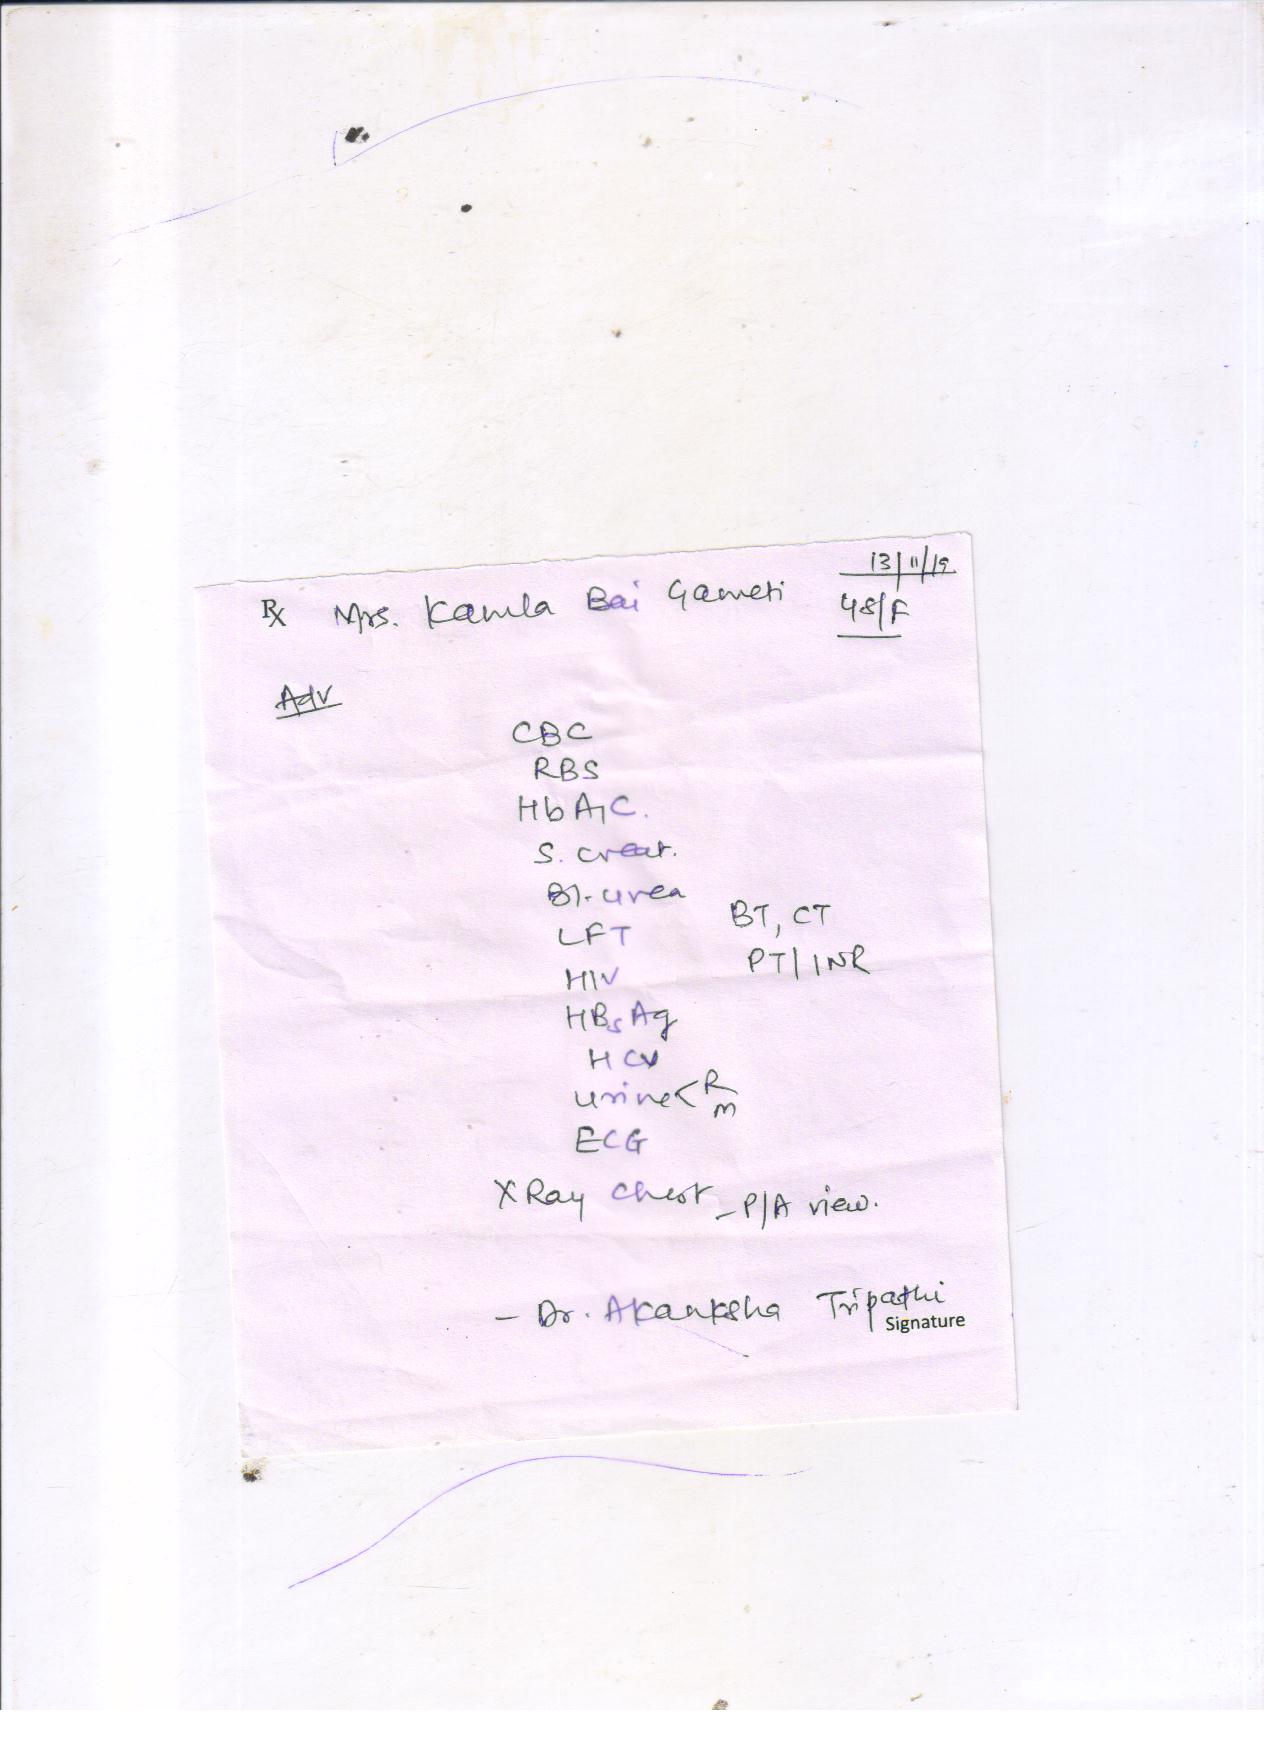 13/11/19
℞ Mrs. Kamla Bai Gameti 48/F
Adv
CBC
RBS
HbA1C.
S. creat.
Bl. urea
LFT BT, CT
HIV PT/INR
HBsAg
HCV
urine < R
m
ECG
X Ray Chest - P/A view.
- Dr. Akanksha Tripathi
Signature